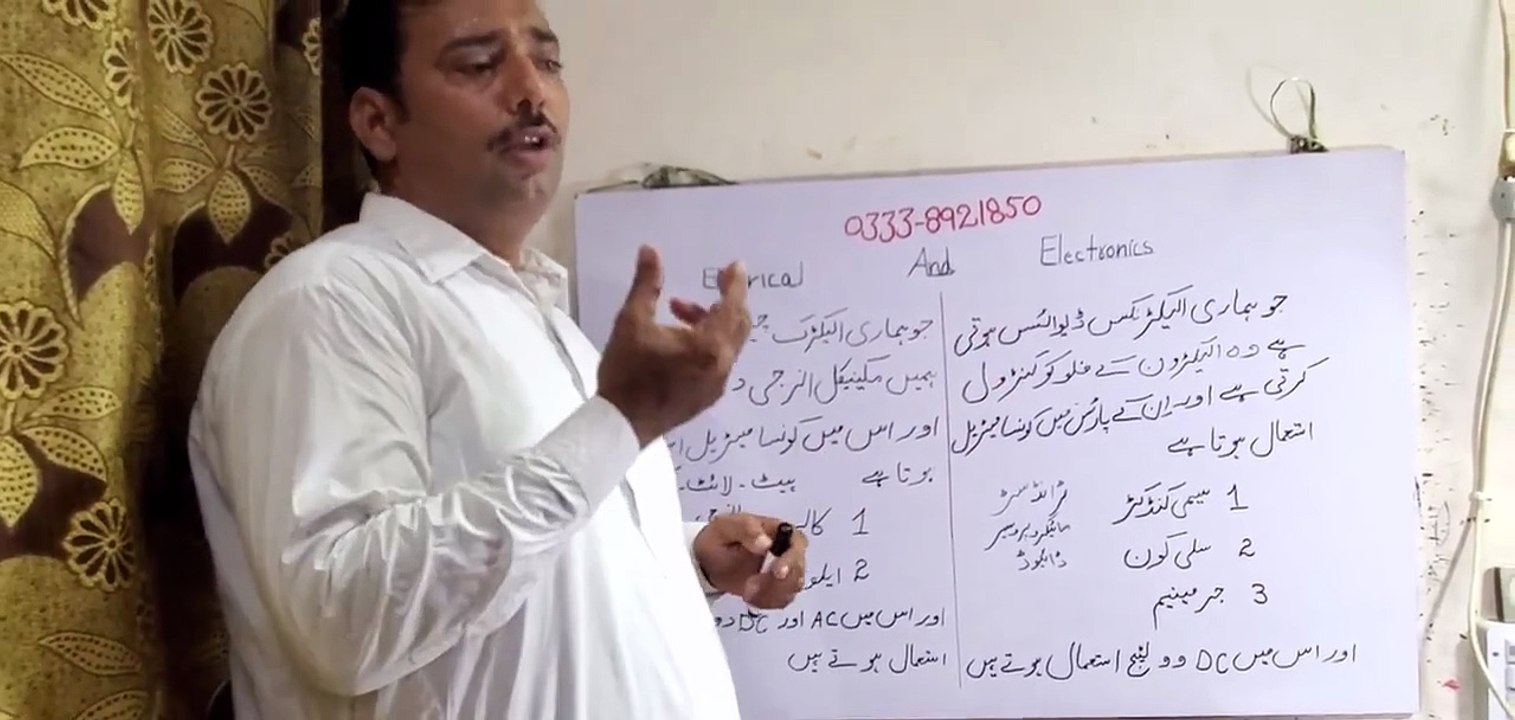 0333-8921850
And Electronics
جو ہماری الیکٹرنکس ڈیوائسس ہوتی
ہے وہ الیکٹرون کے فلو کو کنٹرول
کرتی ہے اور اِن کے پارٹس میں کونسا میٹریل
استعمال ہوتا ہے
1 سیمی کنڈکٹر
2 سلی کون
3 جرمینیم
ٹرانسسٹر
مائیکروپروسیسر
ڈائیوڈ
اور اس میں DC وولٹیج استعمال ہوتے ہیں
جو ہماری الیکٹرک
ہمیں مکینیکل انرجی
اور اس میں کونسا میٹریل
ہوتا ہے ہیٹ - لائٹ -
1
2
اور اس میں AC اور DC
استعمال ہوتے ہیں